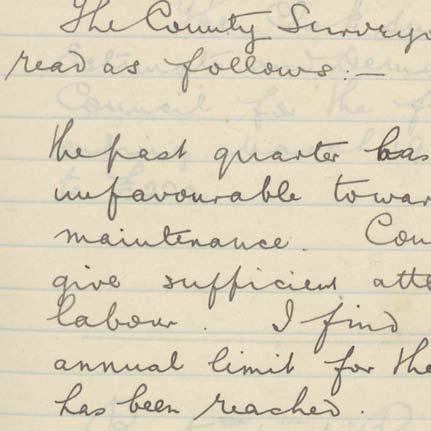 The County Surveyo
read as follows:—
the past quarter has
unfavourable towar
maintenance. Cou
give sufficient atte
labour. I find
annual limit for the
has been reached.